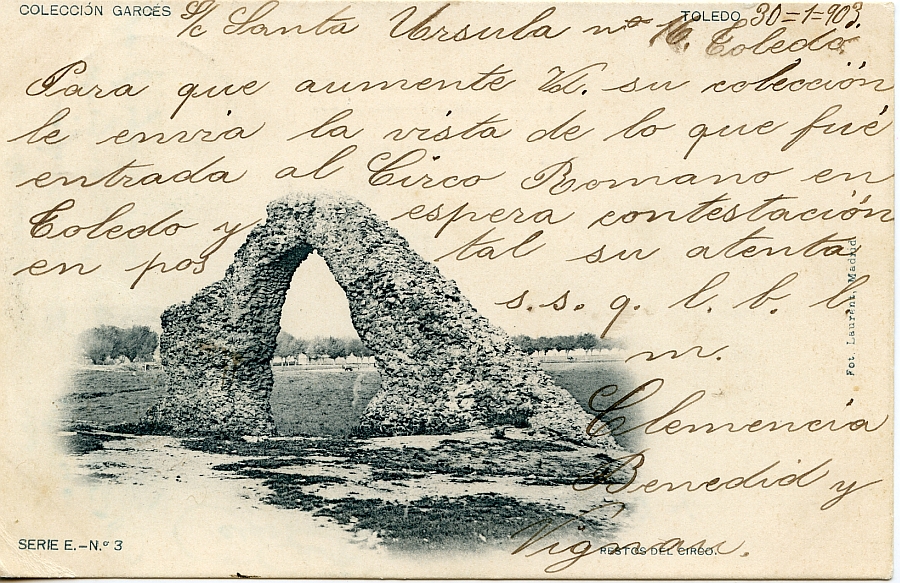 COLECCIÓN GARCÉS
TOLEDO 30=1=903.
S/c Santa Ursula nº 16. Toledo.
Para que aumente Vd. su colección
le envia la vista de lo que fué
entrada al Circo Romano en
Toledo y espera contestación
en pos tal su atenta
s. s. q. l. b. l.
m.
Clemencia
Benedid y
Vignau.
Fot. Laurent, Madrid
SERIE E.-N.º 3
RESTOS DEL CIRCO.